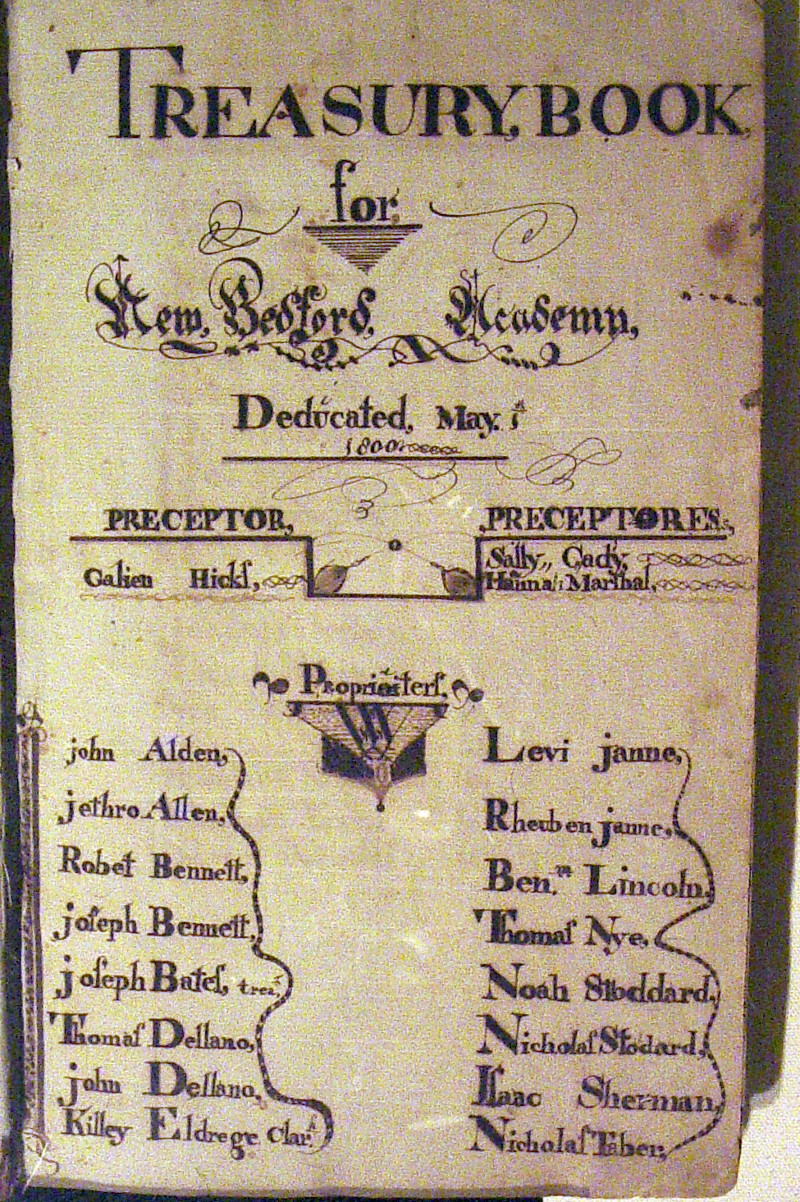 TREASURY, BOOK
for
New, Bedford, Academy,
Dedicated, May, 1st
1800
PRECEPTOR,
Galien Hicks,
PRECEPTORES,
Sally,, Cady,
Hanna,, Marshal,
Proprieters,
john Alden,
jethro Allen,
Robet Bennett,
joſeph Bennett,
joſeph Bateſ, treaſ
Thomaſ Dellano,
john Dellano,
Killey Eldrege Clark
Levi janne,
Rheuben janne,
Ben.m Lincoln,
Thomaſ Nye,
Noah Stoddard,
Nicholaſ Stodard,
Iſaac Sherman,
Nicholaſ Taber,